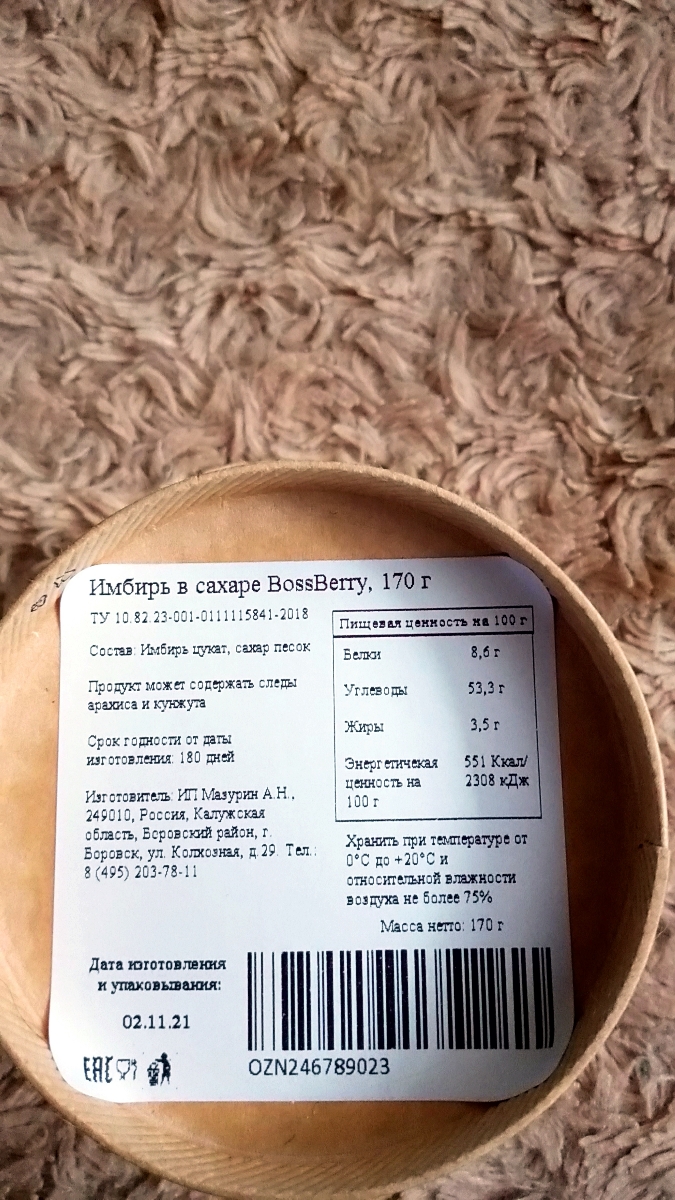 Имбирь в сахаре BossBerry, 170 г
ТУ 10.82.23-001-0111115841-2018
Состав: Имбирь цукат, сахар песок
Продукт может содержать следы
арахиса и кунжута
Срок годности от даты
изготовления: 180 дней
Изготовитель: ИП Мазурин А.Н.,
249010, Россия, Калужская
область, Боровский район, г.
Боровск, ул. Колхозная, д.29. Тел.:
8 (495) 203-78-11
Пищевая ценность на 100 г
Белки 8,6 г
Углеводы 53,3 г
Жиры 3,5 г
Энергетичекая 551 Ккал/
ценность на 2308 кДж
100 г
Хранить при температуре от
0°С до +20°С и
относительной влажности
воздуха не более 75%
Масса нетто: 170 г
Дата изготовления
и упаковывания:
02.11.21
EAC
OZN246789023